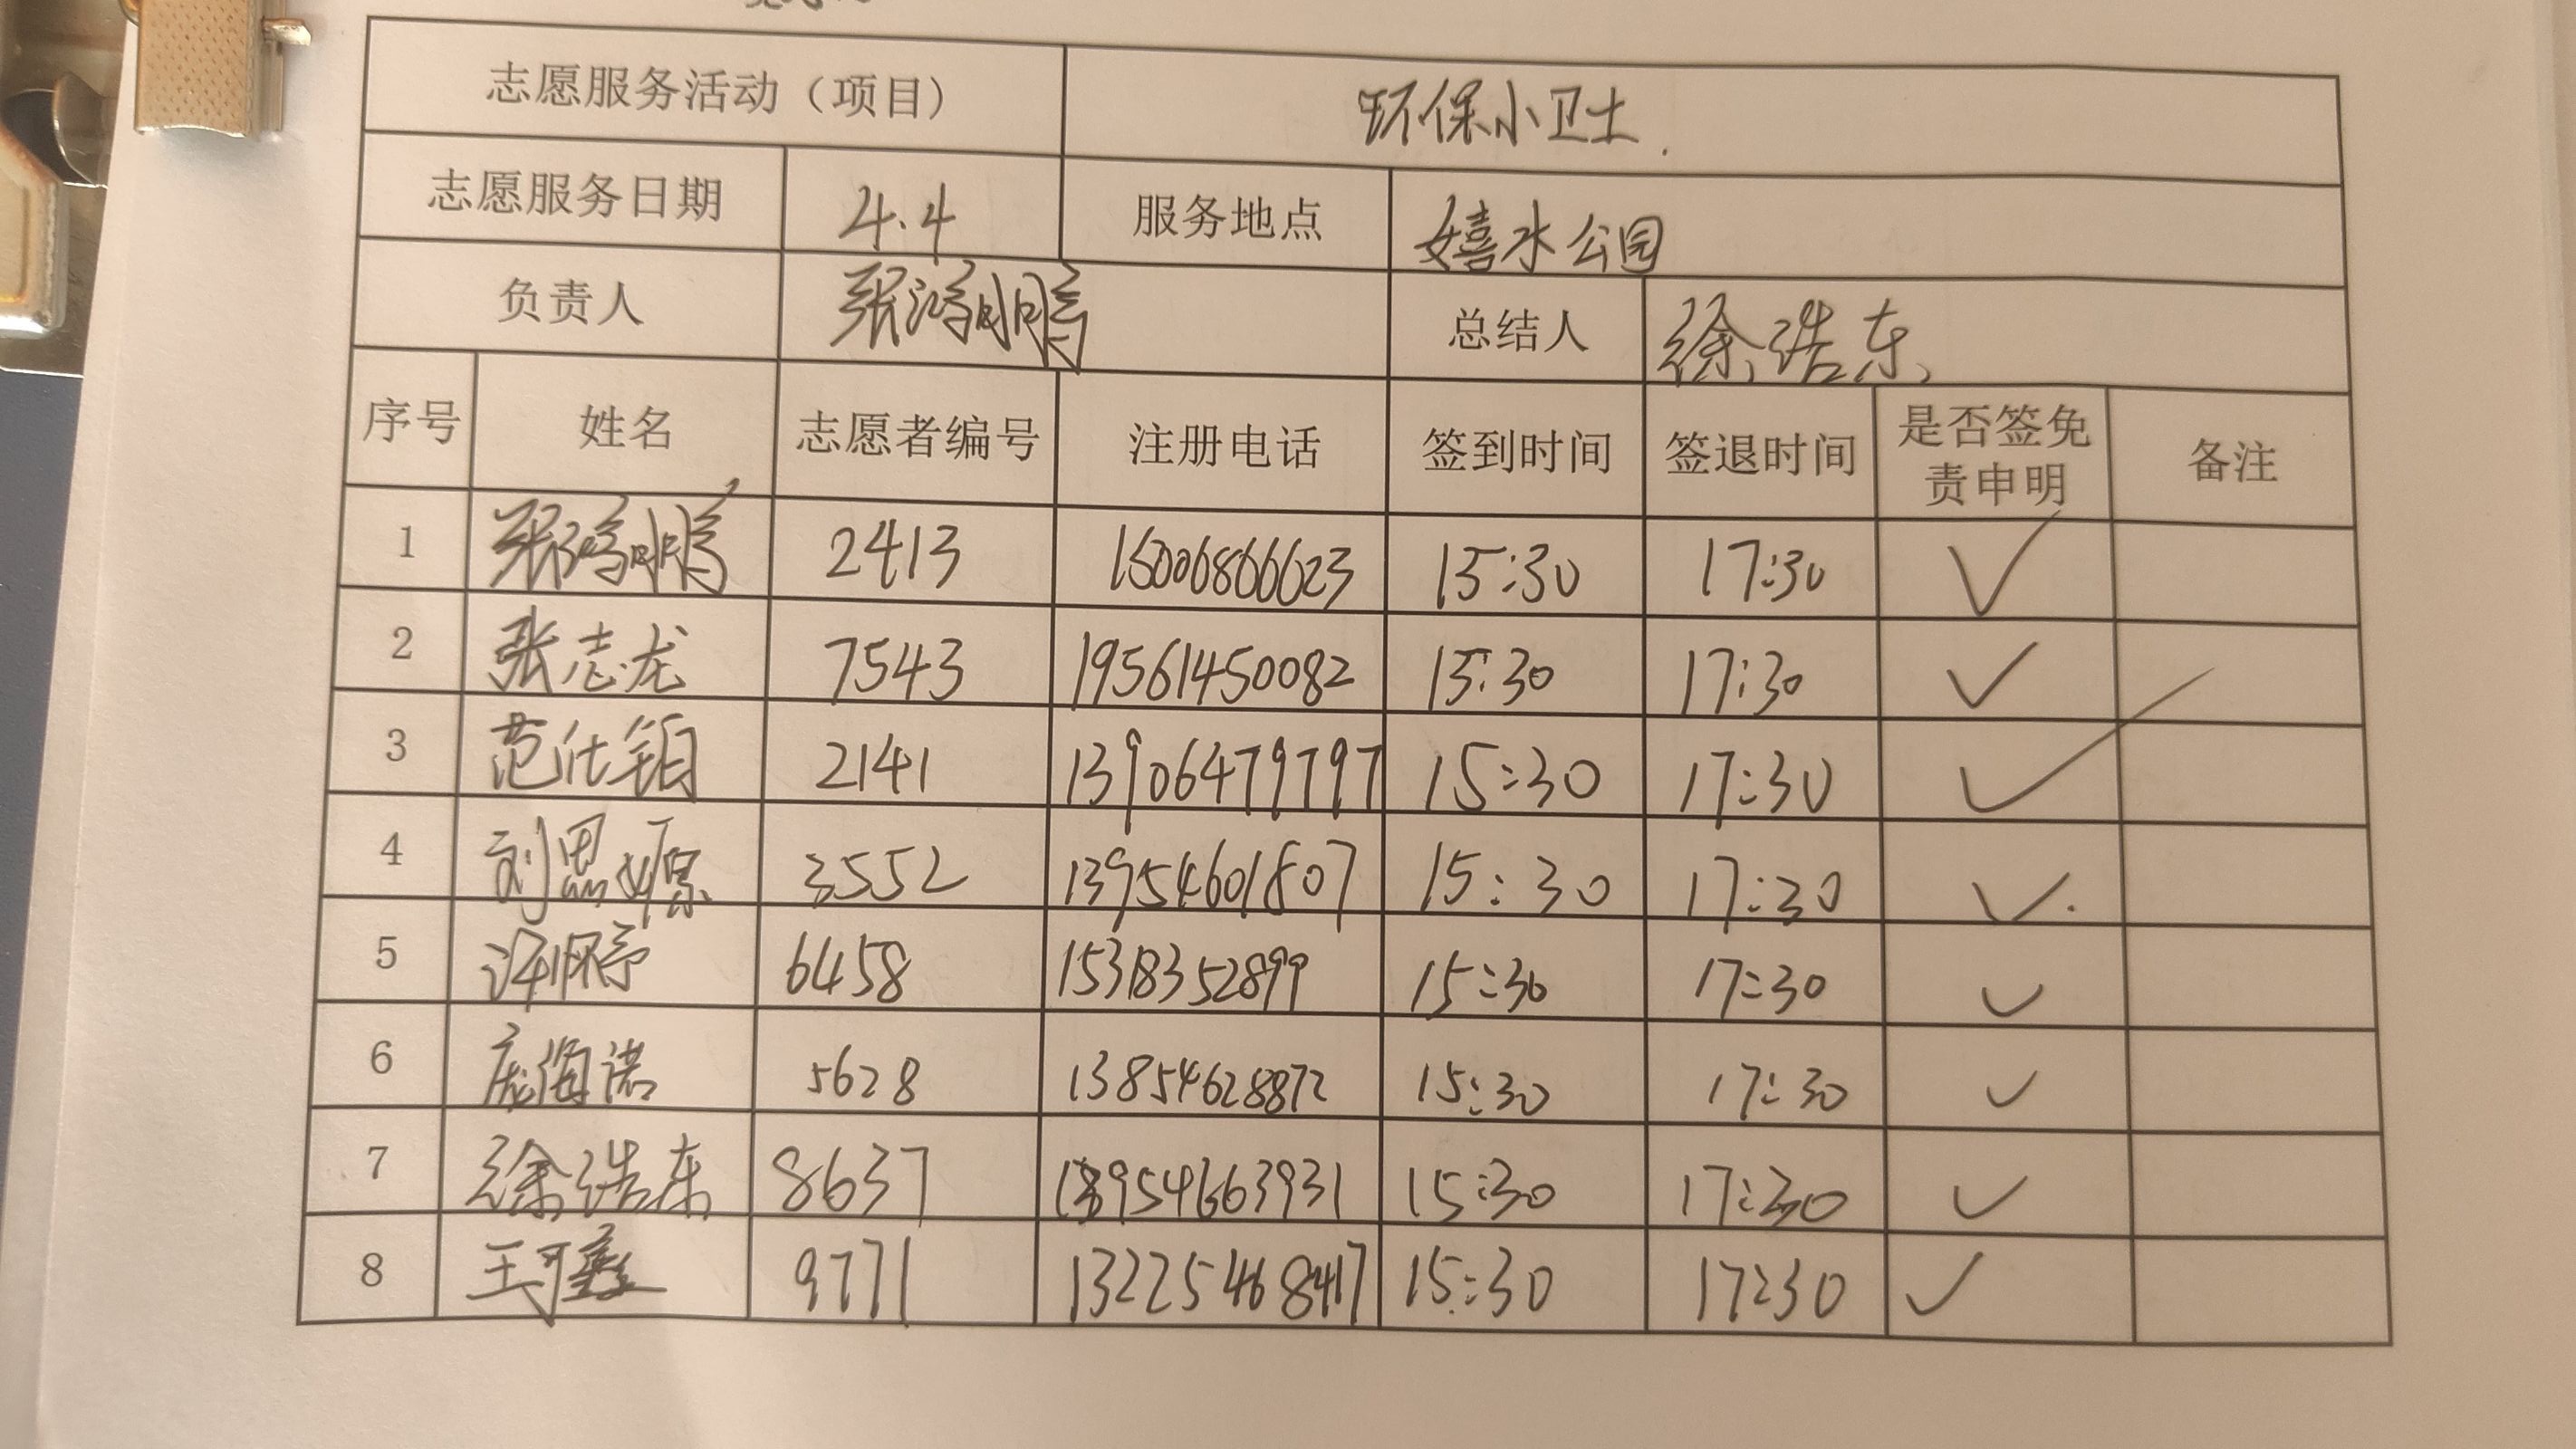 志愿服务活动（项目） 环保小卫士.
志愿服务日期 4.4 服务地点 嬉水公园
负责人 张鸿鹏 总结人 徐浩东
序号 姓名 志愿者编号 注册电话 签到时间 签退时间 是否签免责申明 备注
1 张鸿鹏 2413 15006866623 15:30 17:30 ✓
2 张志龙 7543 19561450082 15:30 17:30 ✓
3 范仕铂 2141 13906479797 15:30 17:30 ✓
4 刘恩嫄 3552 13954601807 15:30 17:30 ✓
5 6458 15318352899 15:30 17:30 ✓
6 庞海诺 5628 13854628872 15:30 17:30 ✓
7 徐浩东 8637 18954663931 15:30 17:30 ✓
8 王可鑫 9771 13225468417 15:30 17:30 ✓